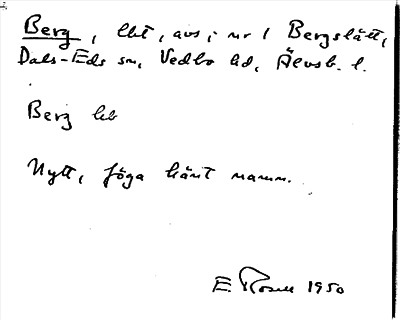 Berg, lht, avs, i nr 1 Bergslätt,
Dals-Eds sn, Vedbo hd, Älvsb. l.
Berg
Nytt, föga känt namn.
E. Rosell 1950